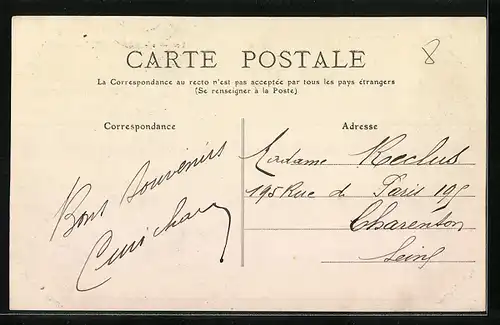 8
CARTE POSTALE
La Correspondance au recto n'est pas acceptée par tous les pays étrangers
(Se renseigner à la Poste)
Correspondance
Bons souvenirs
Adresse
Madame Reclus
195 Rue de Paris 195
Charenton
Seine